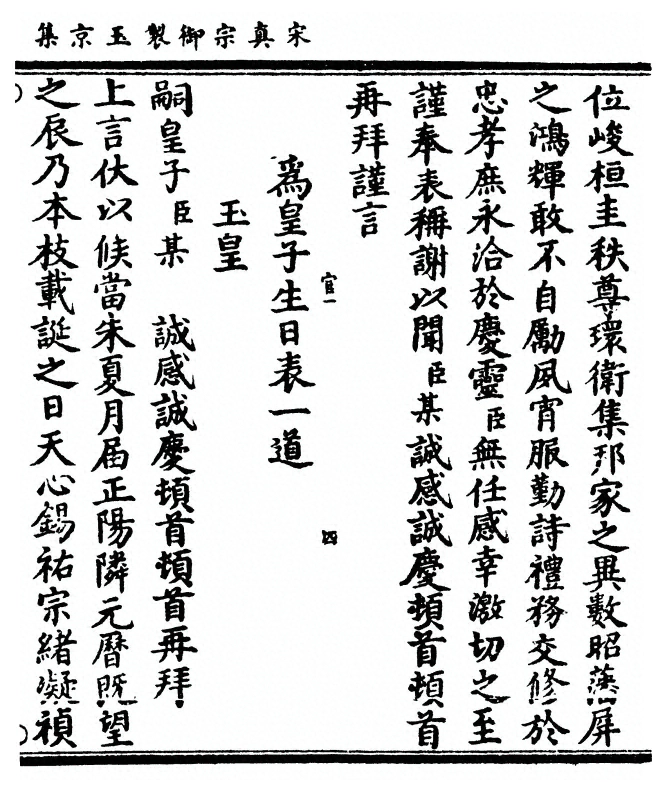 宋真宗御製玉京集
位峻桓圭秩尊環衛集邦家之異數昭藩屏
之鴻輝敢不自勵夙宵服勤詩禮務交修於
忠孝庶永洽於慶靈臣無任感幸激切之至
謹奉表稱謝以聞臣某誠感誠慶頓首頓首
再拜謹言
官一
四
爲皇子生日表一道
玉皇
嗣皇子臣某 誠感誠慶頓首頓首再拜
上言伏以候當朱夏月届正陽隣元曆既望
之辰乃本枝載誕之日天心錫祐宗緒凝禎